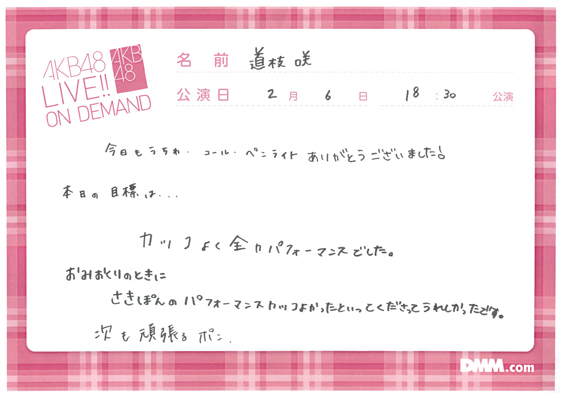 AKB48
LIVE!!
ON DEMAND
AKB
48
名前 道枝 咲
公演日 2 月 6 日 18:30 公演
今日もうちわ・コール・ペンライト ありがとうございました!
本日の目標は...
カッコよく全力パフォーマンスでした。
おみおくりのときに
さきぽんのパフォーマンスカッコよかったといってくださってうれしかったです。
次も頑張るポン.
DMM.com